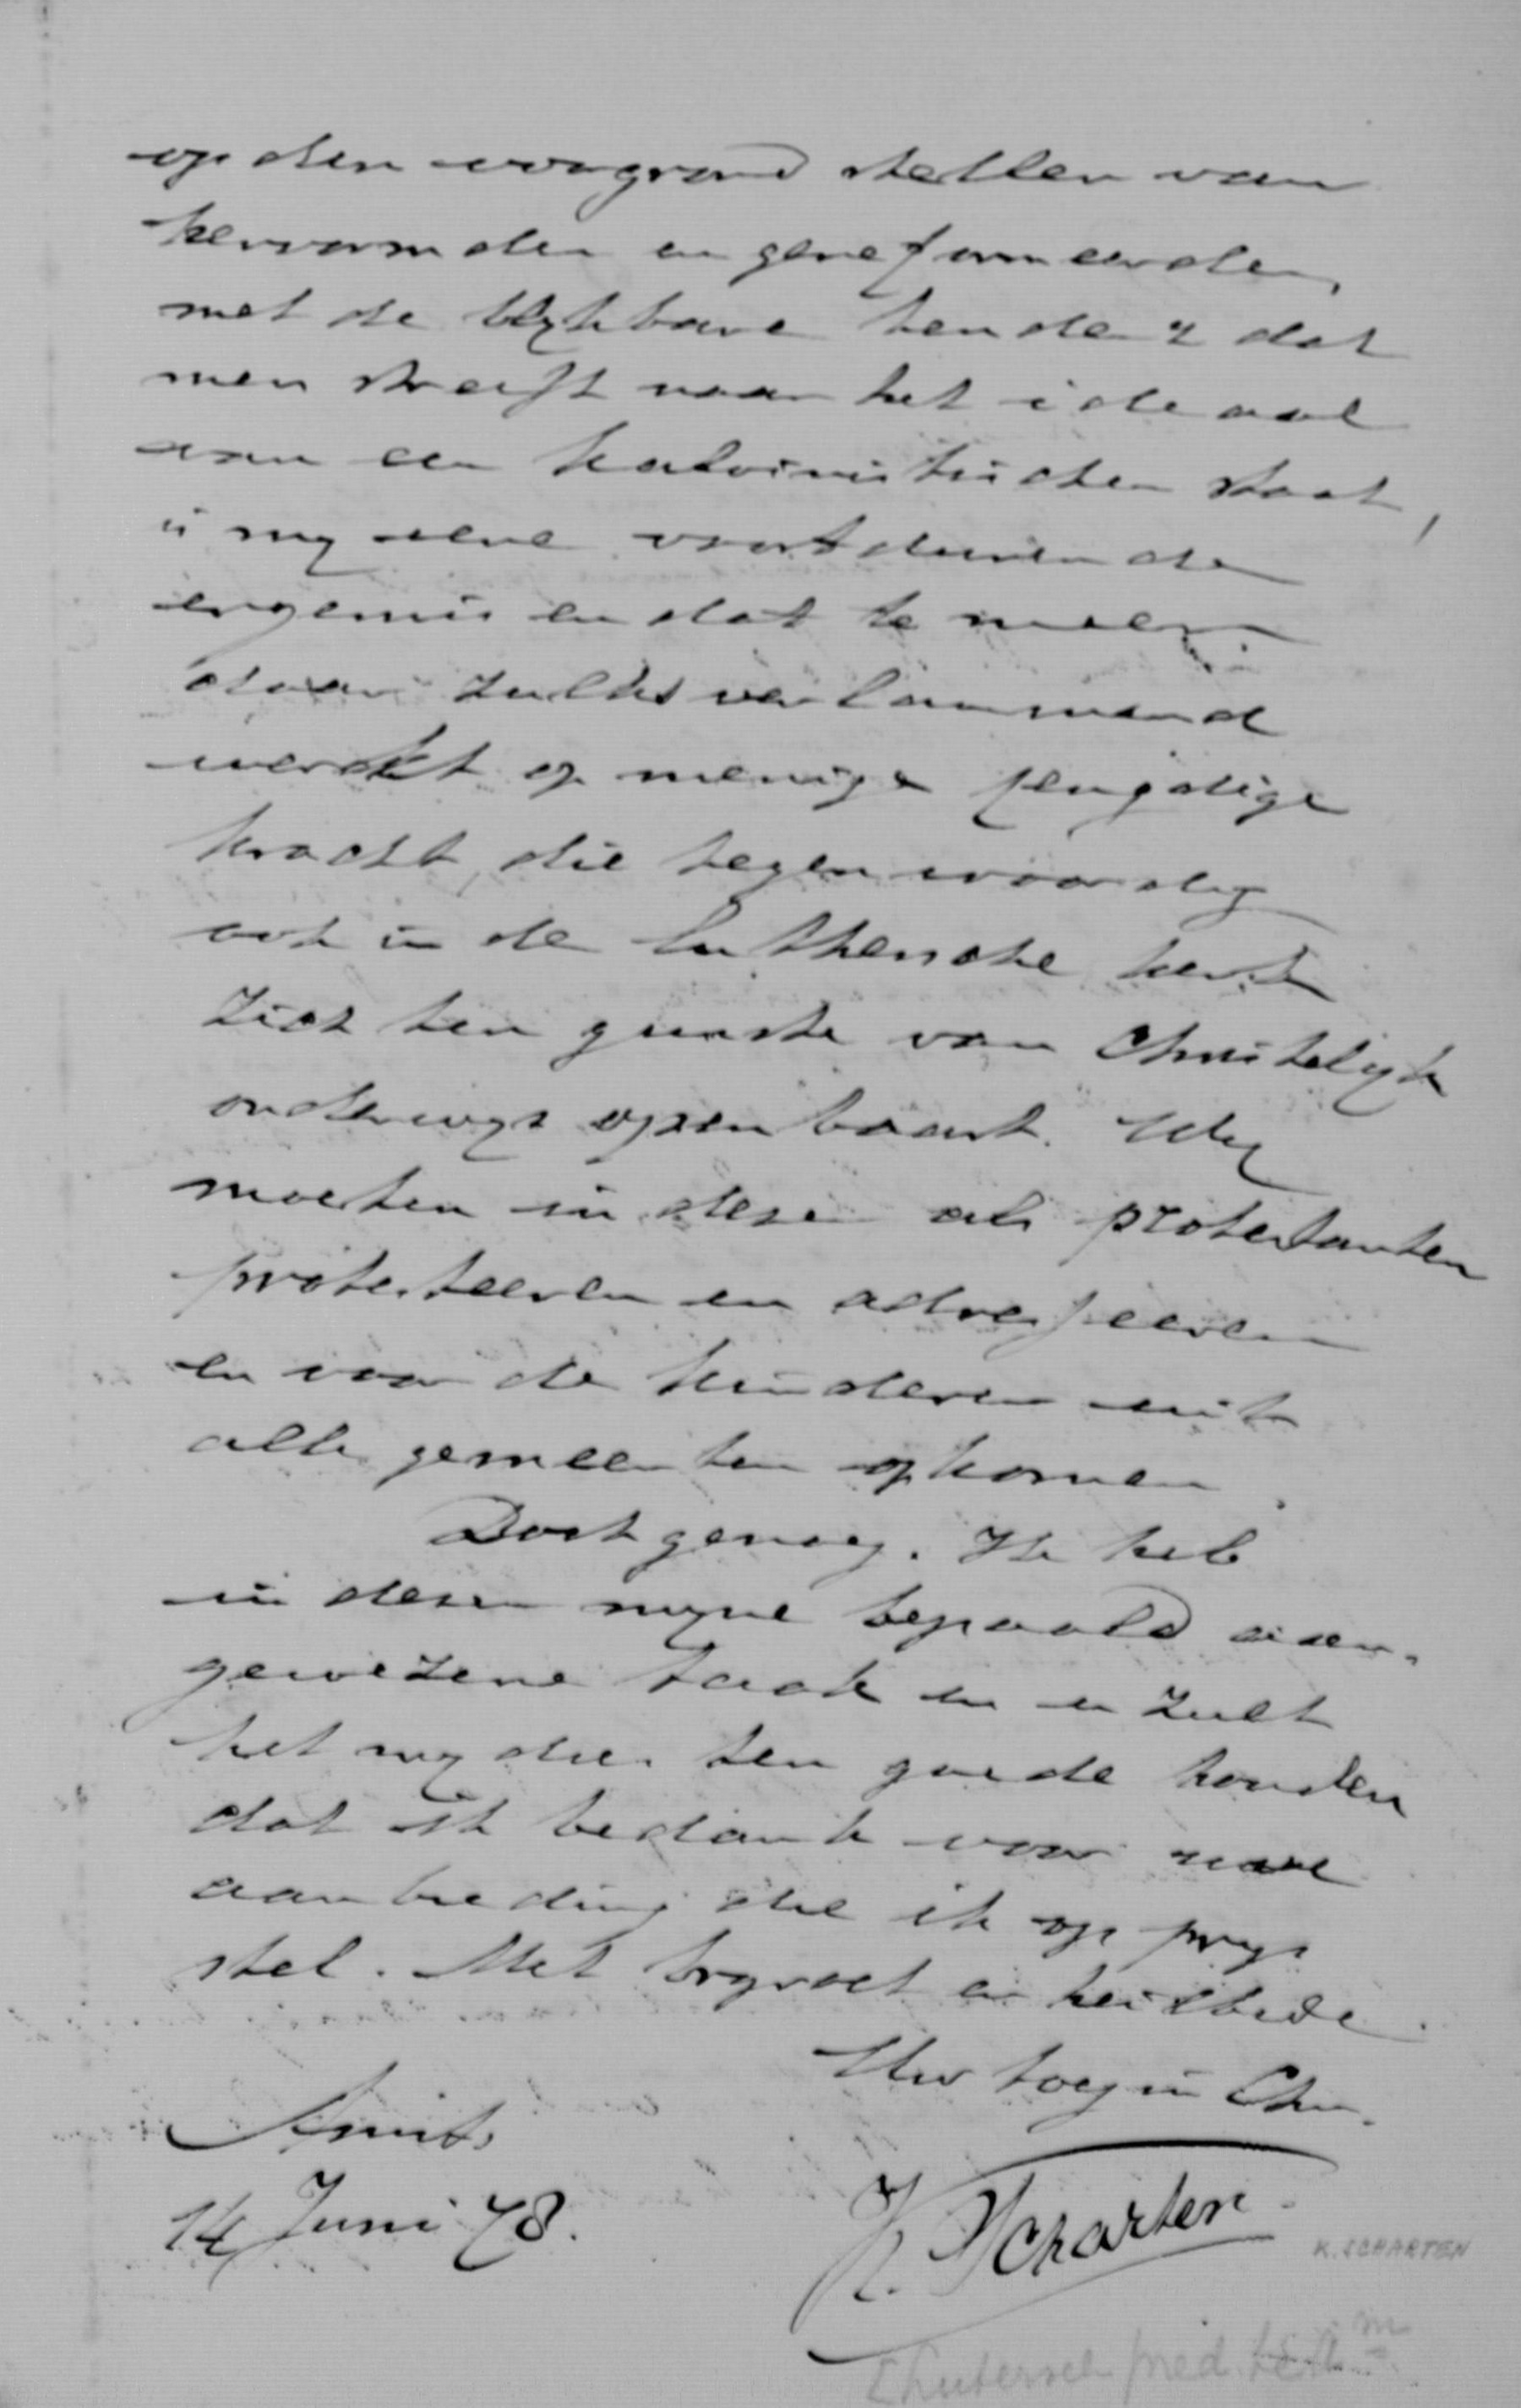 op den voorgrond stellen van
hervormden en gereformeerden,
met de blykbare tendenz dat
men streeft naar het ideaal
van een kalvinistischen staat,
is my eene voortdurende
ergernis en dat te meer
daar zulks verlammend
werkt op menige jeugdige
kracht, die tegenwoordig
ook in de Luthersche kerk
zich ten gunste van Christelyk
onderwys openbaart. Wy
moeten in dezen als protestanten
protesteeren en adresseeren
en voor de kinderen uit
alle gemeenten opkomen.
Doch genoeg. Ik heb
in dezen myne bepaald aan-
gewezene taak en u zult
het my dus ten goede houden
dat ik bedank voor uwe
aanbieding die ik op prys
stel. Met brgroet en heilbede
Uw toeg in Chr.
Amst.
14 Juni 78.
K. Scharten
K. SCHARTEN
Luthersch pred. te A'm